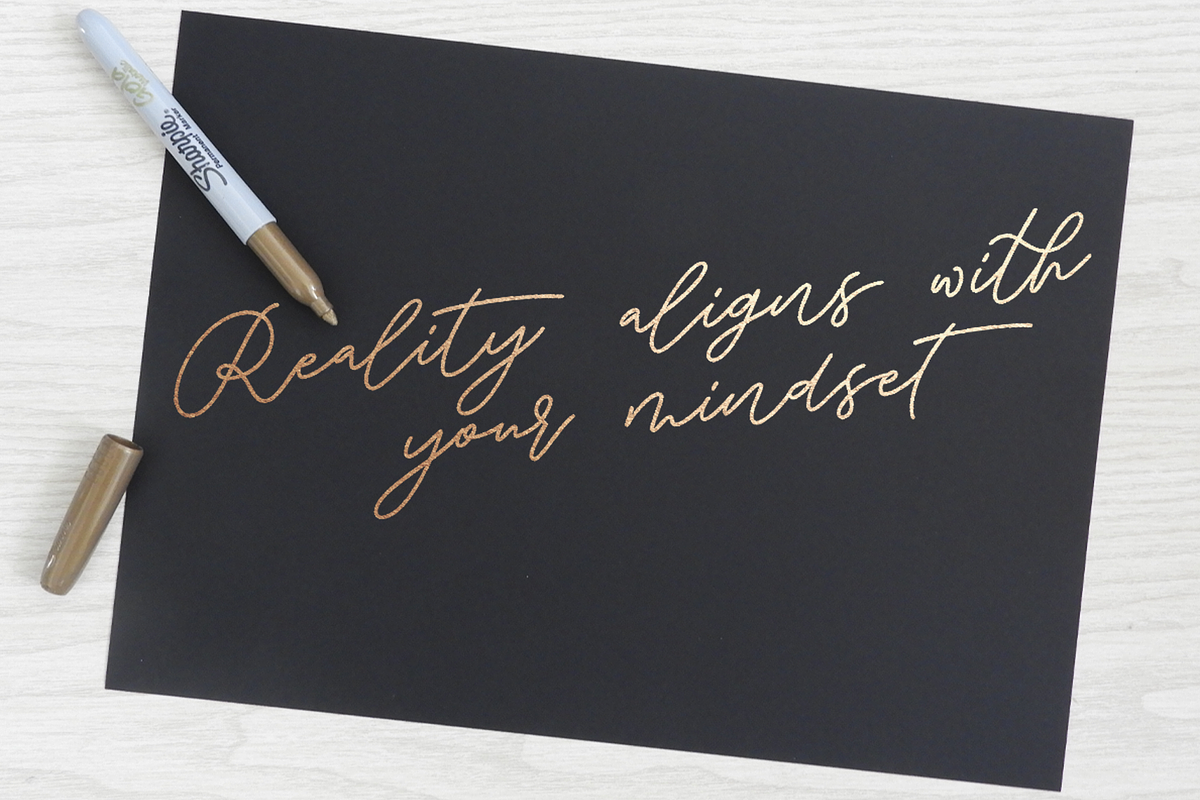 Reality aligns with
your mindset
Sharpie
Permanent Marker